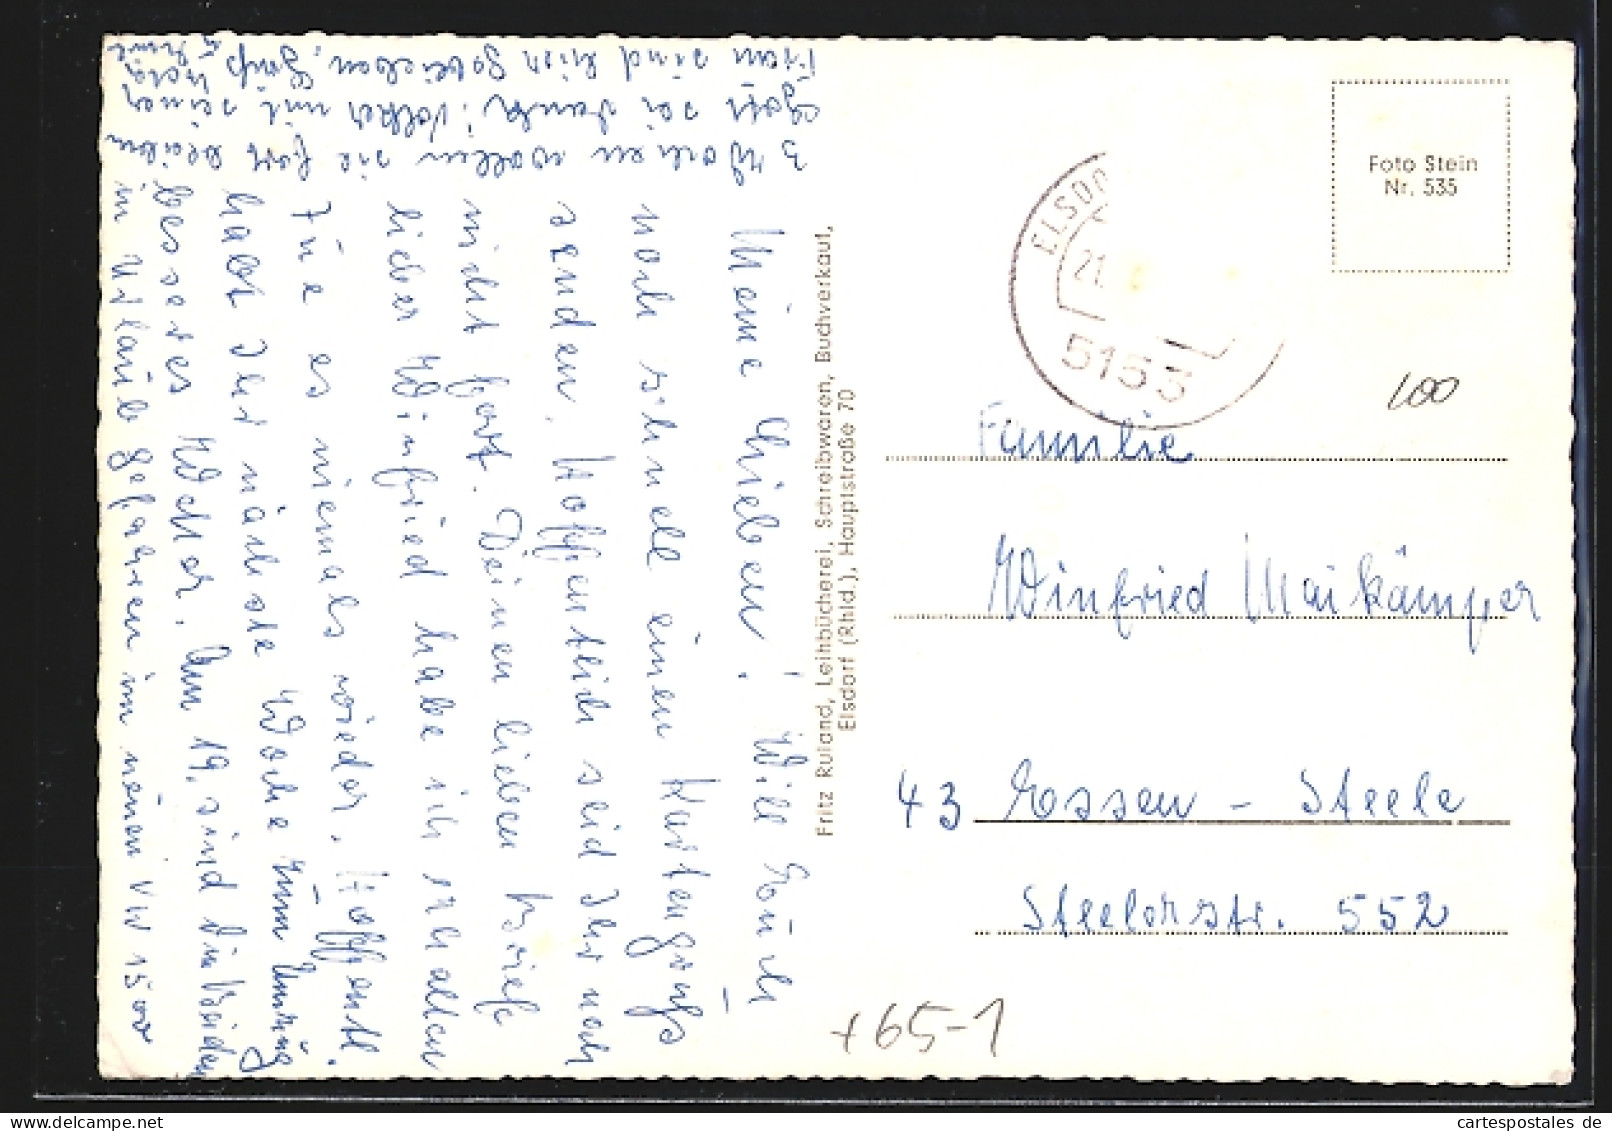 Meine Lieben! Will Euch
noch schnell einen Kartengruß
senden. Hoffentlich seid Ihr noch
nicht fort. Deinen lieben Brief
lieber Winfried habe ich erhalten
Tue es niemals wieder. Hoffentl.
habt Ihr nächste Woche zum Umzug
besseres Wetter. Am 19. sind die beiden
in Urlaub gefahren im neuen VW 1500
3 Wochen wollen sie fort bleiben
Gott sei dank! Volker mit seiner
Frau sind hier geblieben. Gruß
Fritz Ruland, Leihbücherei, Schreibwaren, Buchverkauf,
Elsdorf (Rhld.), Hauptstraße 70
Foto Stein
Nr. 535
ELSDO
21.
5153
100
Familie
Winfried Maikämper
43 Essen - Steele
Steelerstr. 552
+65-1
www.cartespostales.de